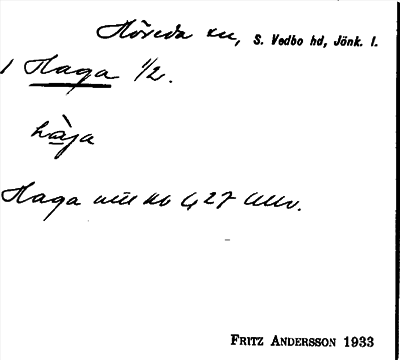 Höreda sn, S. Vedbo hd, Jönk. l.
1 Haga 1/2.
hàga
Haga
FRITZ ANDERSSON 1933